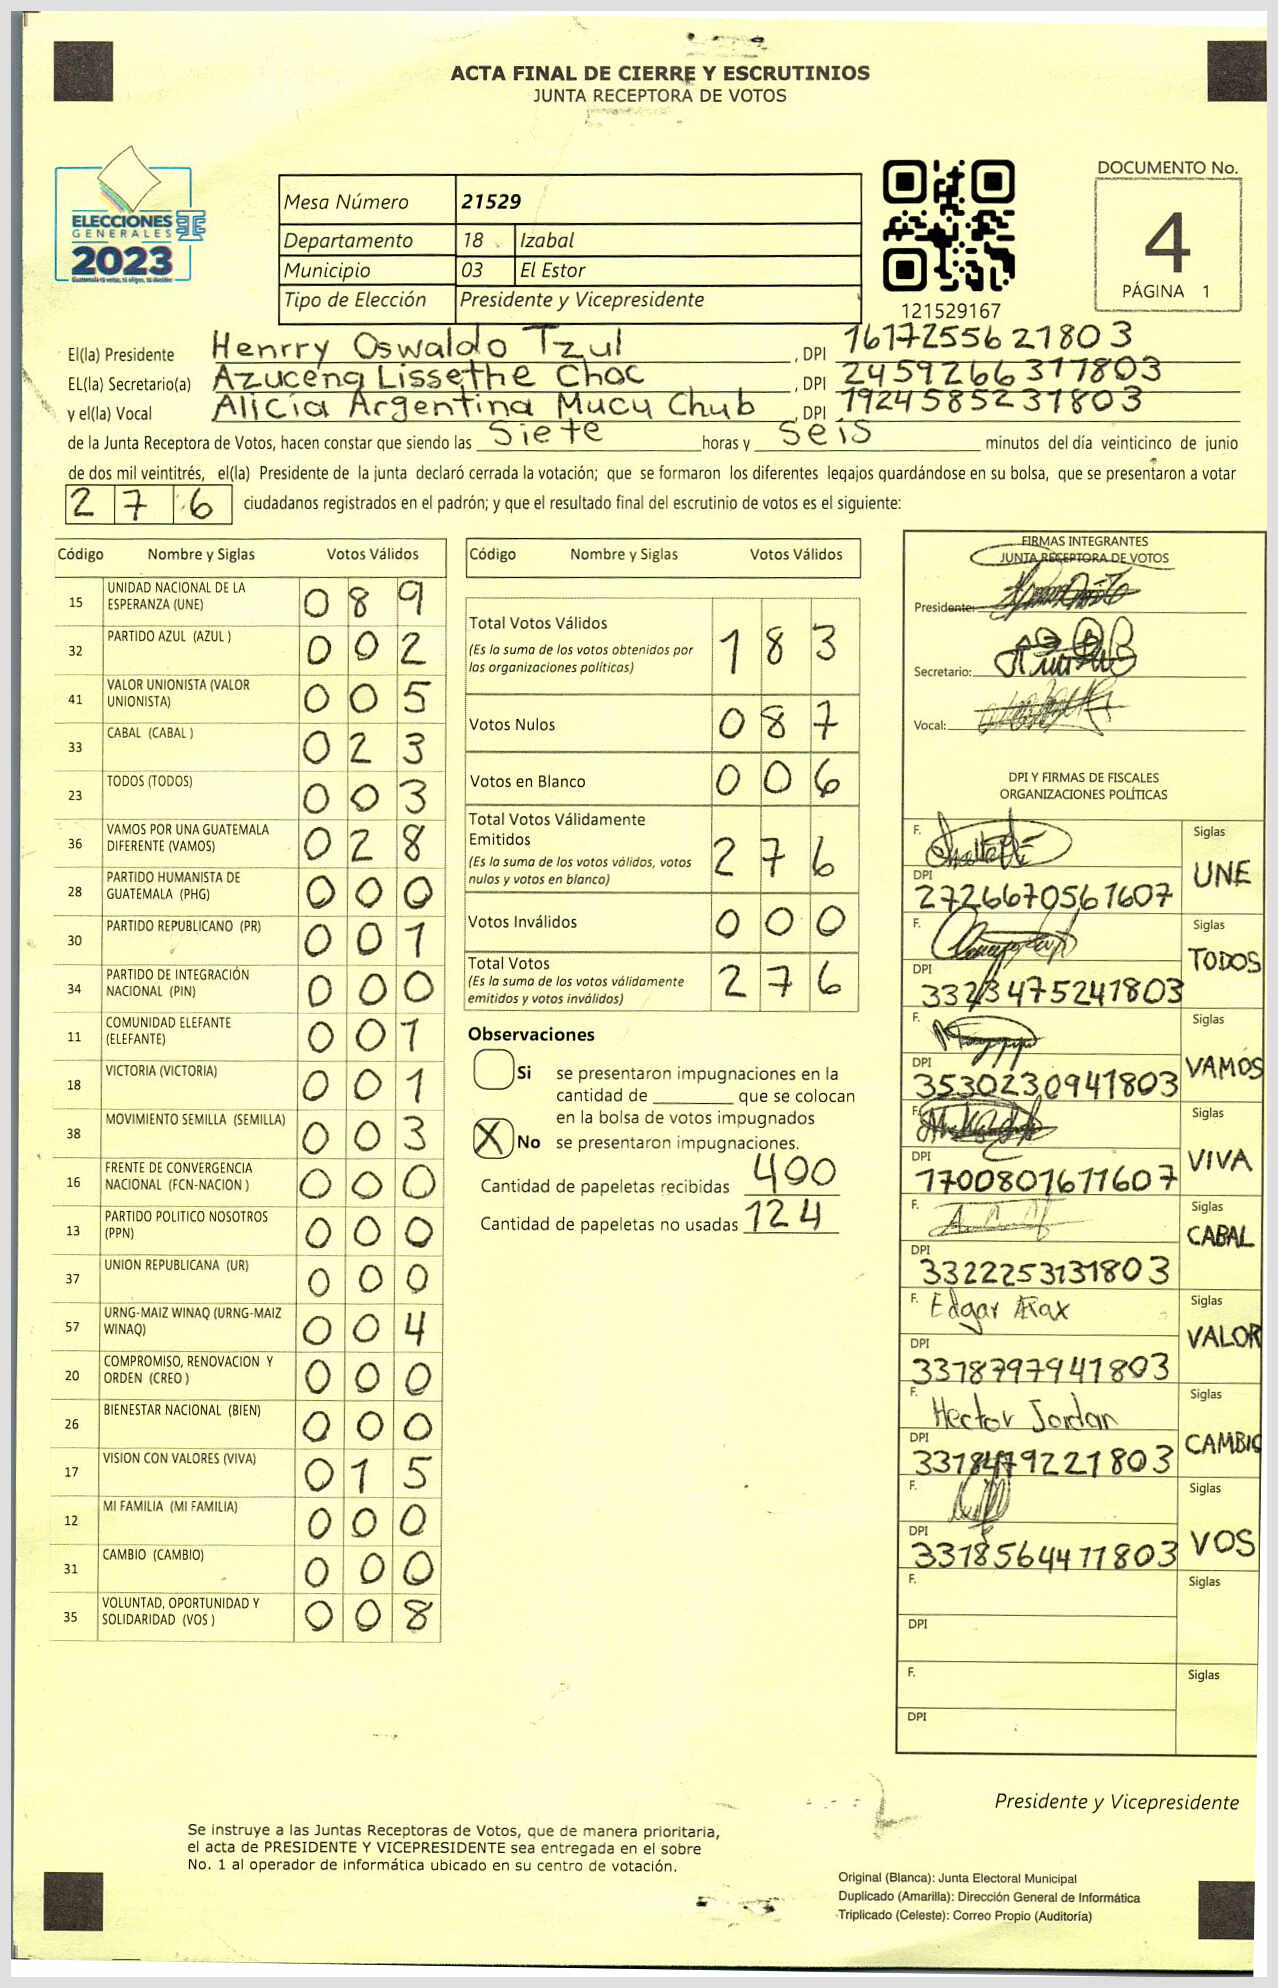 ACTA FINAL DE CIERRE Y ESCRUTINIOS
JUNTA RECEPTORA DE VOTOS
ELECCIONES
GENERALES
2023
TSE
Mesa Número 21529
Departamento 18 Izabal
Municipio 03 El Estor
Tipo de Elección Presidente y Vicepresidente
121529167
DOCUMENTO No.
4
PÁGINA 1
El(la) Presidente Henrry Oswaldo Tzul , DPI 1617255621803
EL(la) Secretario(a) Azucena Lissethe Choc , DPI 2459266311803
y el(la) Vocal Alicia Argentina Mucu Chub , DPI 1924585231803
de la Junta Receptora de Votos, hacen constar que siendo las Siete horas y Seis minutos del día veinticinco de junio
de dos mil veintitrés, el(la) Presidente de la junta declaró cerrada la votación; que se formaron los diferentes legajos quardándose en su bolsa, que se presentaron a votar
2 7 6 ciudadanos registrados en el padrón; y que el resultado final del escrutinio de votos es el siguiente:
Código Nombre y Siglas Votos Válidos
15 UNIDAD NACIONAL DE LA ESPERANZA (UNE) 0 8 9
32 PARTIDO AZUL (AZUL ) 0 0 2
41 VALOR UNIONISTA (VALOR UNIONISTA) 0 0 5
33 CABAL (CABAL ) 0 2 3
23 TODOS (TODOS) 0 0 3
36 VAMOS POR UNA GUATEMALA DIFERENTE (VAMOS) 0 2 8
28 PARTIDO HUMANISTA DE GUATEMALA (PHG) 0 0 0
30 PARTIDO REPUBLICANO (PR) 0 0 1
34 PARTIDO DE INTEGRACIÓN NACIONAL (PIN) 0 0 0
11 COMUNIDAD ELEFANTE (ELEFANTE) 0 0 1
18 VICTORIA (VICTORIA) 0 0 1
38 MOVIMIENTO SEMILLA (SEMILLA) 0 0 3
16 FRENTE DE CONVERGENCIA NACIONAL (FCN-NACION ) 0 0 0
13 PARTIDO POLITICO NOSOTROS (PPN) 0 0 0
37 UNION REPUBLICANA (UR) 0 0 0
57 URNG-MAIZ WINAQ (URNG-MAIZ WINAQ) 0 0 4
20 COMPROMISO, RENOVACION Y ORDEN (CREO ) 0 0 0
26 BIENESTAR NACIONAL (BIEN) 0 0 0
17 VISION CON VALORES (VIVA) 0 1 5
12 MI FAMILIA (MI FAMILIA) 0 0 0
31 CAMBIO (CAMBIO) 0 0 0
35 VOLUNTAD, OPORTUNIDAD Y SOLIDARIDAD (VOS ) 0 0 8
Código Nombre y Siglas Votos Válidos
Total Votos Válidos 1 8 3
(Es la suma de los votos obtenidos por
las organizaciones políticas)
Votos Nulos 0 8 7
Votos en Blanco 0 0 6
Total Votos Válidamente
Emitidos 2 7 6
(Es la suma de los votos válidos, votos
nulos y votos en blanco)
Votos Inválidos 0 0 0
Total Votos 2 7 6
(Es la suma de los votos válidamente
emitidos y votos inválidos)
Observaciones
Si se presentaron impugnaciones en la
cantidad de ________ que se colocan
en la bolsa de votos impugnados
X No se presentaron impugnaciones.
Cantidad de papeletas recibidas 400
Cantidad de papeletas no usadas 124
FIRMAS INTEGRANTES
JUNTA RECEPTORA DE VOTOS
Presidente:
Secretario:
Vocal:
DPI Y FIRMAS DE FISCALES
ORGANIZACIONES POLÍTICAS
F. Siglas
DPI UNE
2726670561607
F. Siglas
DPI TODOS
3323475241803
F. Siglas
DPI VAMOS
3530230941803
F. Siglas
DPI VIVA
1700801611607
F. Siglas
DPI CABAL
3322253131803
F. Edgar Siglas
DPI VALOR
3318797941803
F. Hector Jordan Siglas
DPI CAMBIO
3318479221803
F. Siglas
DPI VOS
3318564411803
F. Siglas
DPI
F. Siglas
DPI
Presidente y Vicepresidente
Se instruye a las Juntas Receptoras de Votos, que de manera prioritaria,
el acta de PRESIDENTE Y VICEPRESIDENTE sea entregada en el sobre
No. 1 al operador de informática ubicado en su centro de votación.
Original (Blanca): Junta Electoral Municipal
Duplicado (Amarilla): Dirección General de Informática
Triplicado (Celeste): Correo Propio (Auditoría)